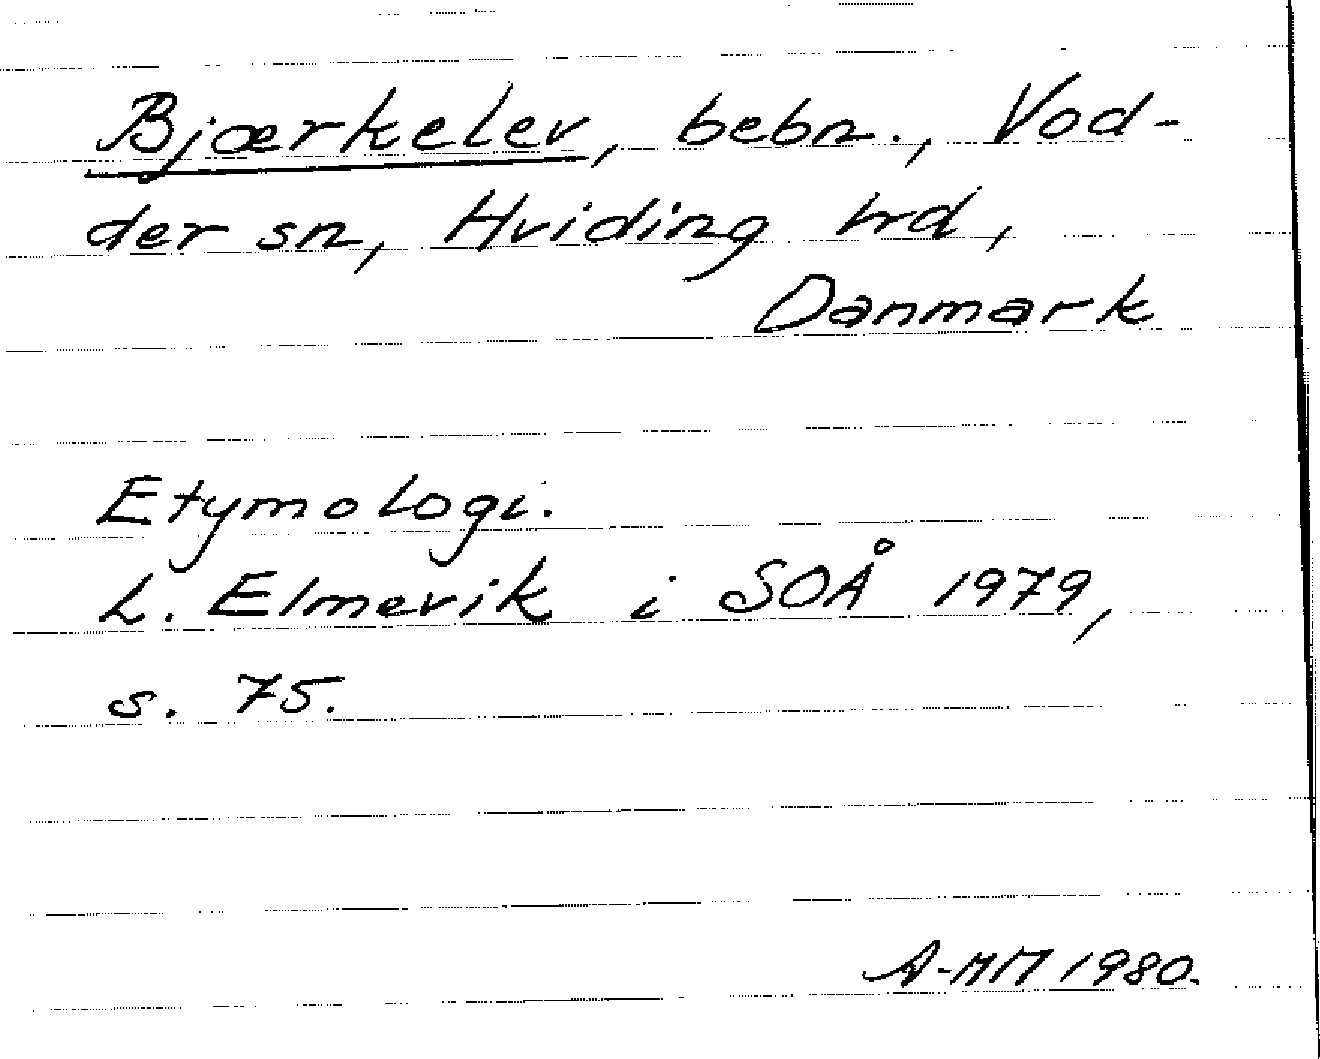 Bjærkelev, bebn., Vod-
der sn, Hviding hrd,
Danmark
Etymologi.
L. Elmevik i SOÅ 1979,
s. 75.
A-MM 1980.